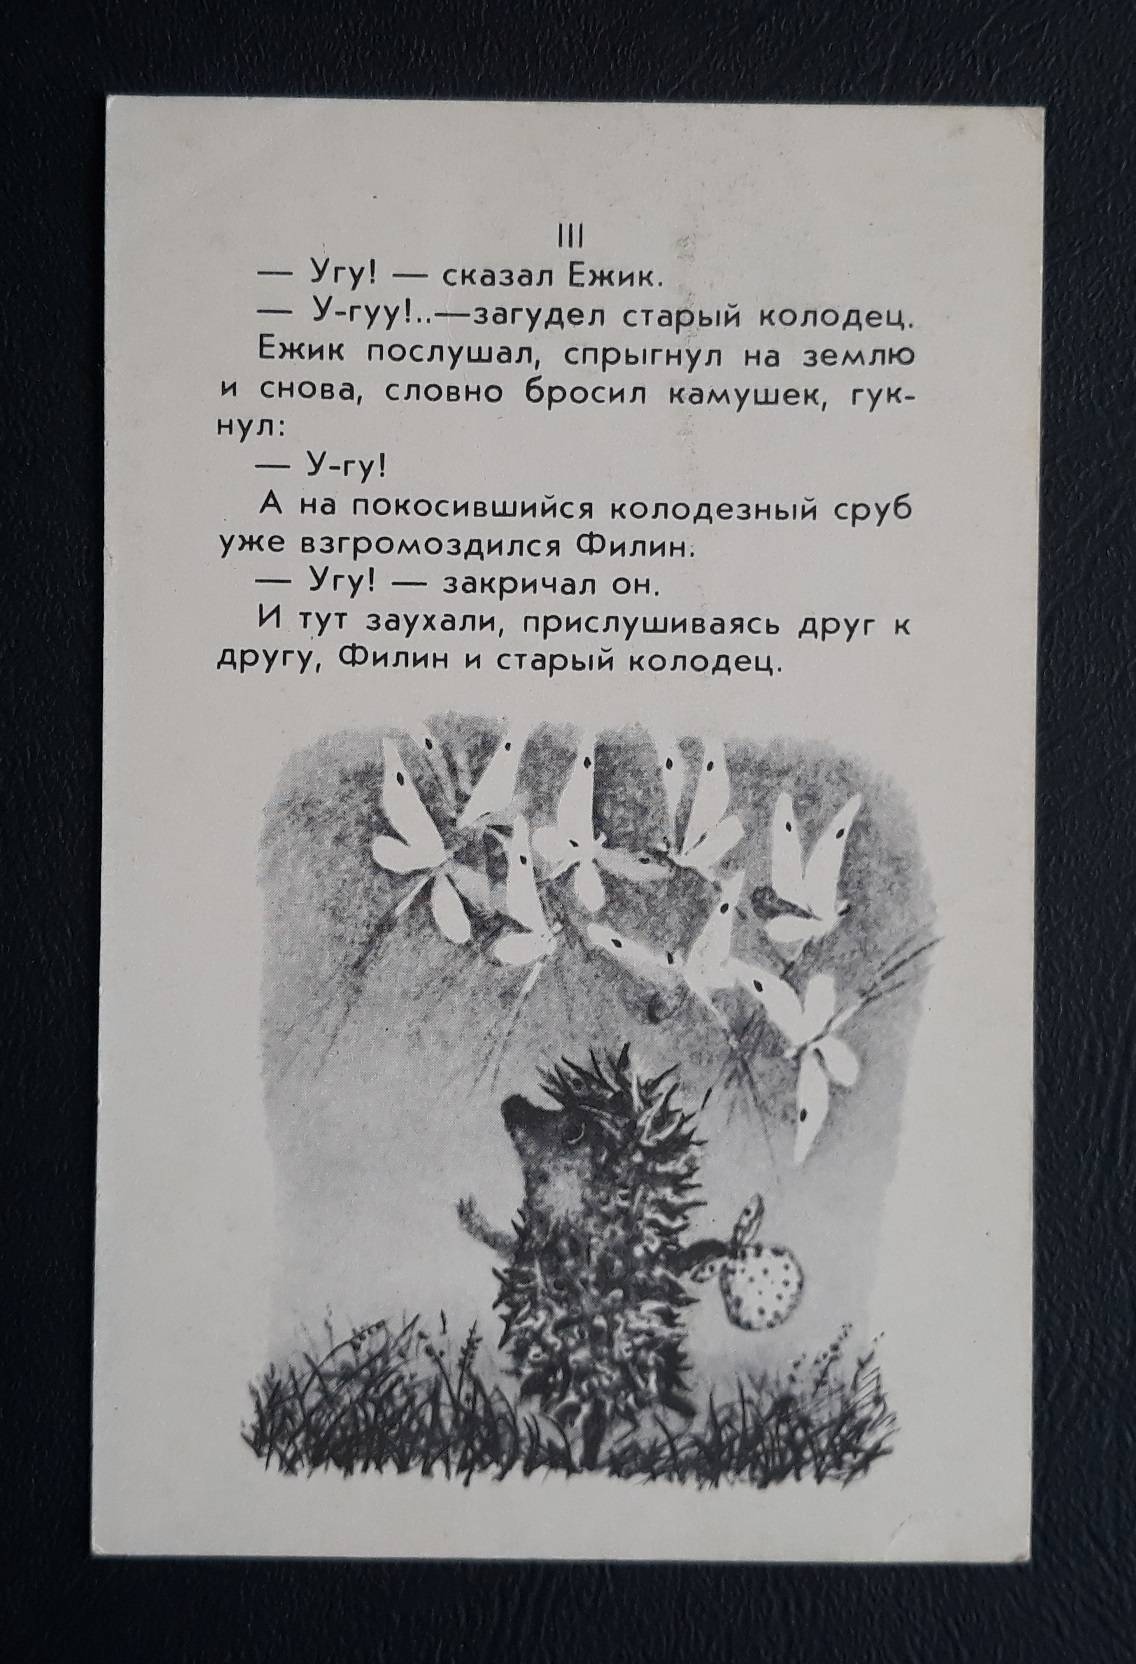 III
— Угу! — сказал Ежик.
— У-гуу!..—загудел старый колодец.
Ежик послушал, спрыгнул на землю
и снова, словно бросил камушек, гук-
нул:
— У-гу!
А на покосившийся колодезный сруб
уже взгромоздился Филин.
— Угу! — закричал он.
И тут заухали, прислушиваясь друг к
другу, Филин и старый колодец.